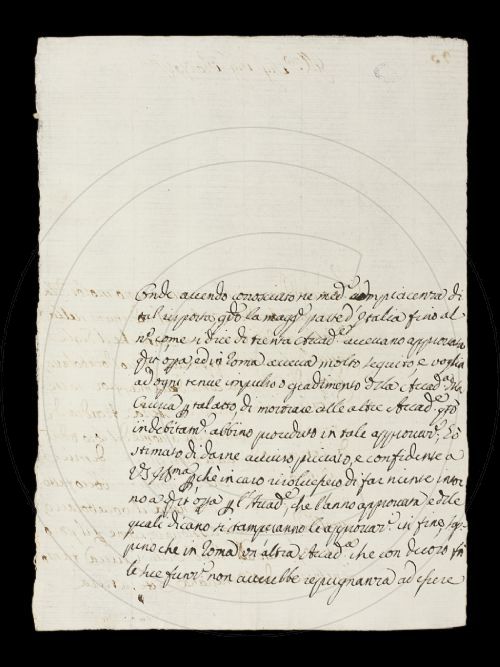 Onde avendo conosciuto ne med.i compiacenza di
tal risposta, già la magg.r parte d'Italia fino al
n.o come si dice di trenta Accad.e avevano approvata
d.a opa, ed in Roma aveva molto seguito e
ad ogni tenue impulso o gradimento della Accad.a della
Crusca alle altre Accad.e
indebitam.te abbino proceduto in tale approvaz.e Ho
stimato di darne avviso preciso, e confidente a
VS Ill.ma, perchè in caso risolvessero di far niente intor
no a d.a opa p l'Accad.e, che l'anno approvata e delle
quali dicano si stamperanno le approvaz.i in fine, sap
pino che in Roma un'altra Accad.a che con decoro fà
le sue funz.i non averebbe repugnanza ad essere